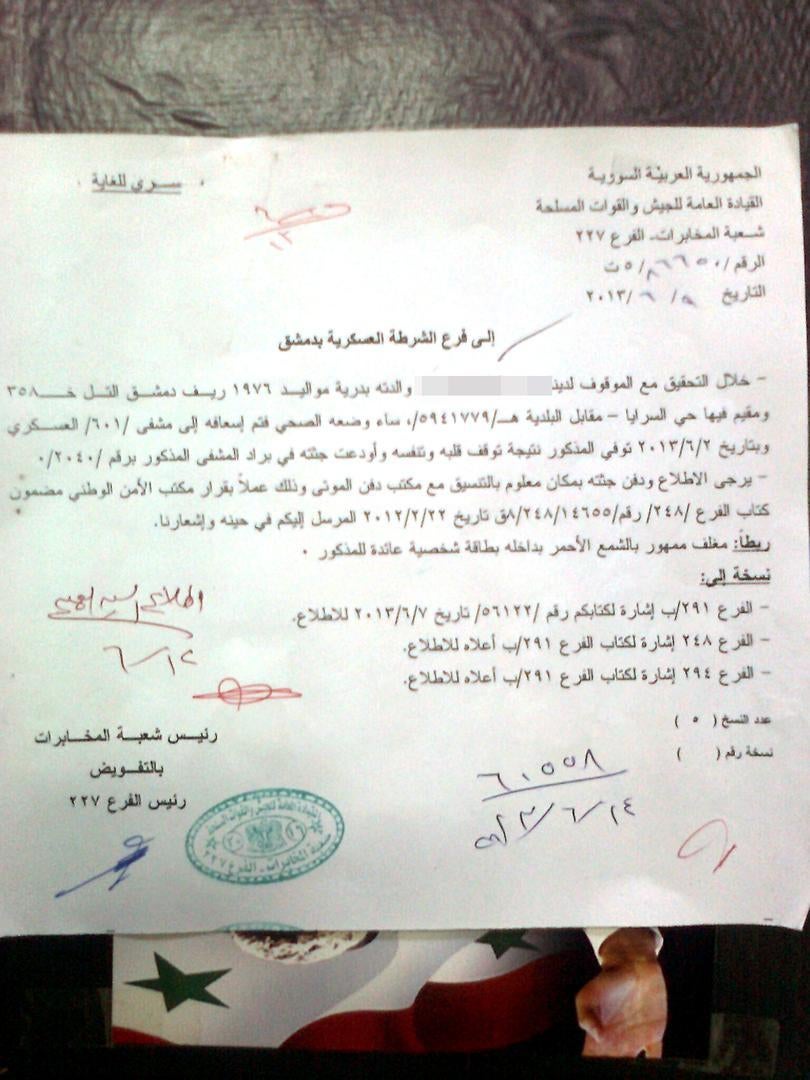 الجمهورية العربية السورية
القيادة العامة للجيش والقوات المسلحة
شعبة المخابرات- الفرع ٢٢٧
الرقم /٨٦٦٥٠/ ٥ ت
التاريخ ٩/ ٦ /٢٠١٣
سري للغاية
إلى فرع الشرطة العسكرية بدمشق
- خلال التحقيق مع الموقوف لدينا والدته بدرية مواليد ١٩٧٦ ريف دمشق التل خـــ٣٥٨
ومقيم فيها حي السرايا - مقابل البلدية هــ/٥٩٤١٧٧٩/، ساء وضعه الصحي فتم إسعافه إلى مشفى /٦٠١/ العسكري
وبتاريخ ٢٠١٣/٦/٢ توفي المذكور نتيجة توقف قلبه وتنفسه وأودعت جثته في براد المشفى المذكور برقم /٢٠٤٠/٠
- يرجى الاطلاع ودفن جثته بمكان معلوم بالتنسيق مع مكتب دفن الموتى وذلك عملاً بقرار مكتب الأمن الوطني مضمون
كتاب الفرع /٢٤٨/ رقم/١٤٦٥٥/٢٤٨/٨ق تاريخ ٢٠١٢/٢/٢٢ المرسل إليكم في حينه وإشعارنا.
ربطاً: مغلف ممهور بالشمع الأحمر بداخله بطاقة شخصية عائدة للمذكور ٠
نسخة إلى:
- الفرع ٢٩١/ب إشارة لكتابكم رقم /٥٦١٢٢/ تاريخ ٢٠١٣/٦/٧ للاطلاع.
- الفرع ٢٤٨ إشارة لكتاب الفرع ٢٩١/ب أعلاه للاطلاع.
- الفرع ٢٩٤ إشارة لكتاب الفرع ٢٩١/ب أعلاه للاطلاع.
٦/١٢
عدد النسخ ( ٥ )
نسخة رقم ( )
رئيس شعبة المخابرات
بالتفويض
رئيس الفرع ٢٢٧
القيادة العامة للجيش والقوات المسلحة
شعبة المخابرات - الفرع ٢٢٧
٦٠٥٥٨